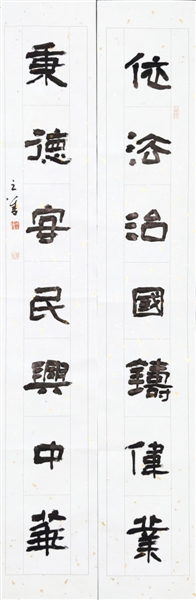 依法治國鑄偉業
秉德安民興中華
立善